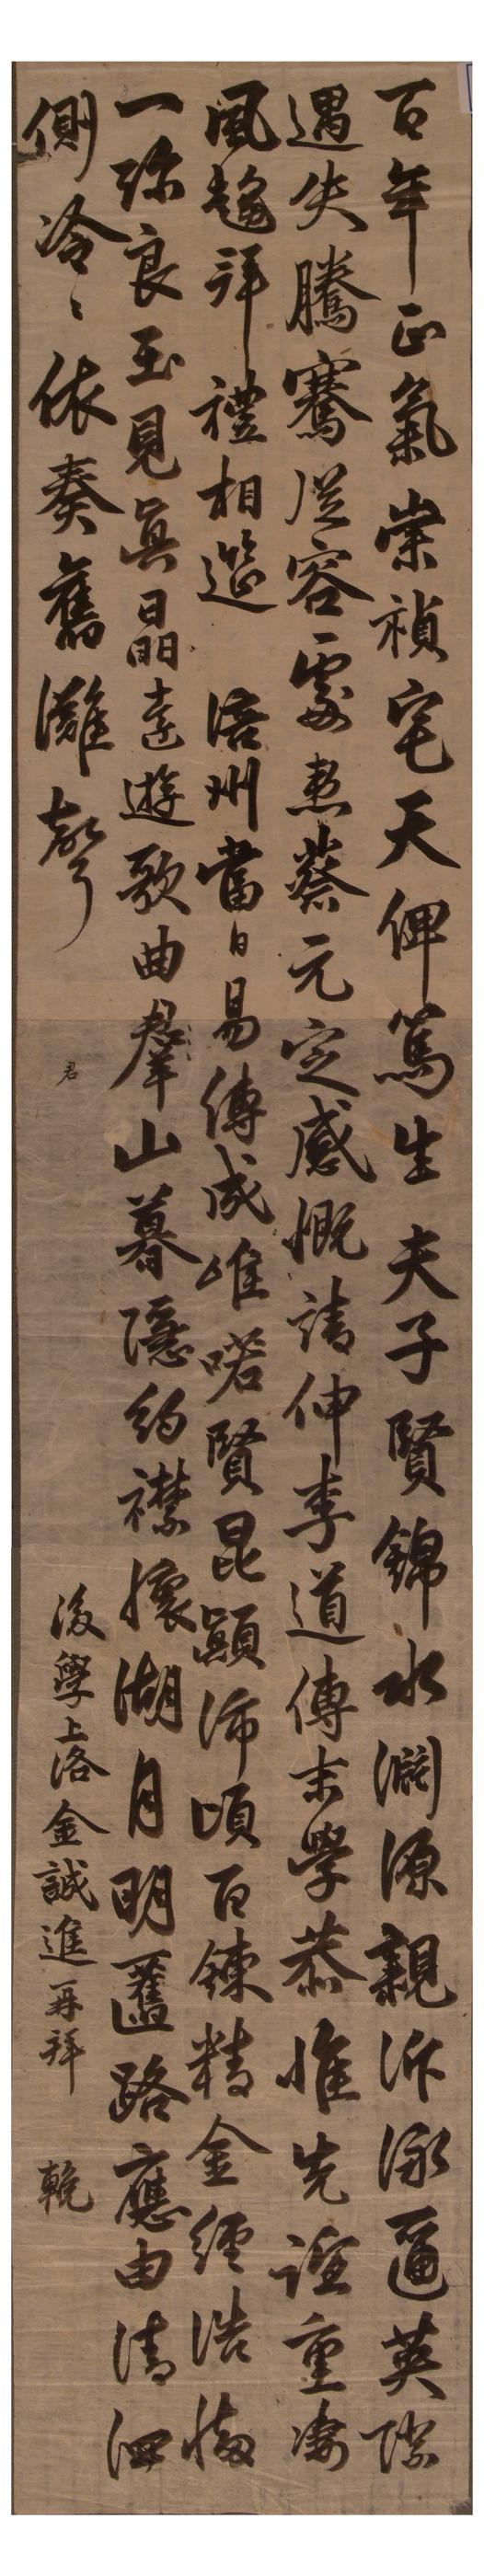 百年正氣崇禎宅天俾篤生夫子賢錦水淵源親泝泳邇英際
遇失騰騫從容處患蔡元定感慨請伸李道傳末學恭惟先誼重凄
風趍拜禮相筵 涪州當日易傳成唯喏賢昆顚沛頃百鍊精金經浩
一弥良玉見眞晶遠遊歌曲羣山暮隱約襟懷湖月明舊路應由清泗
側冷〻依奏舊灘聲
君
後學上洛金誠進再拜 輓